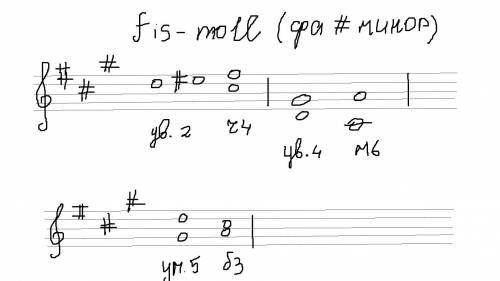 fis-moll (фа # минор)
ув. 2 ч4
ув. 4 м6
ум. 5 б3